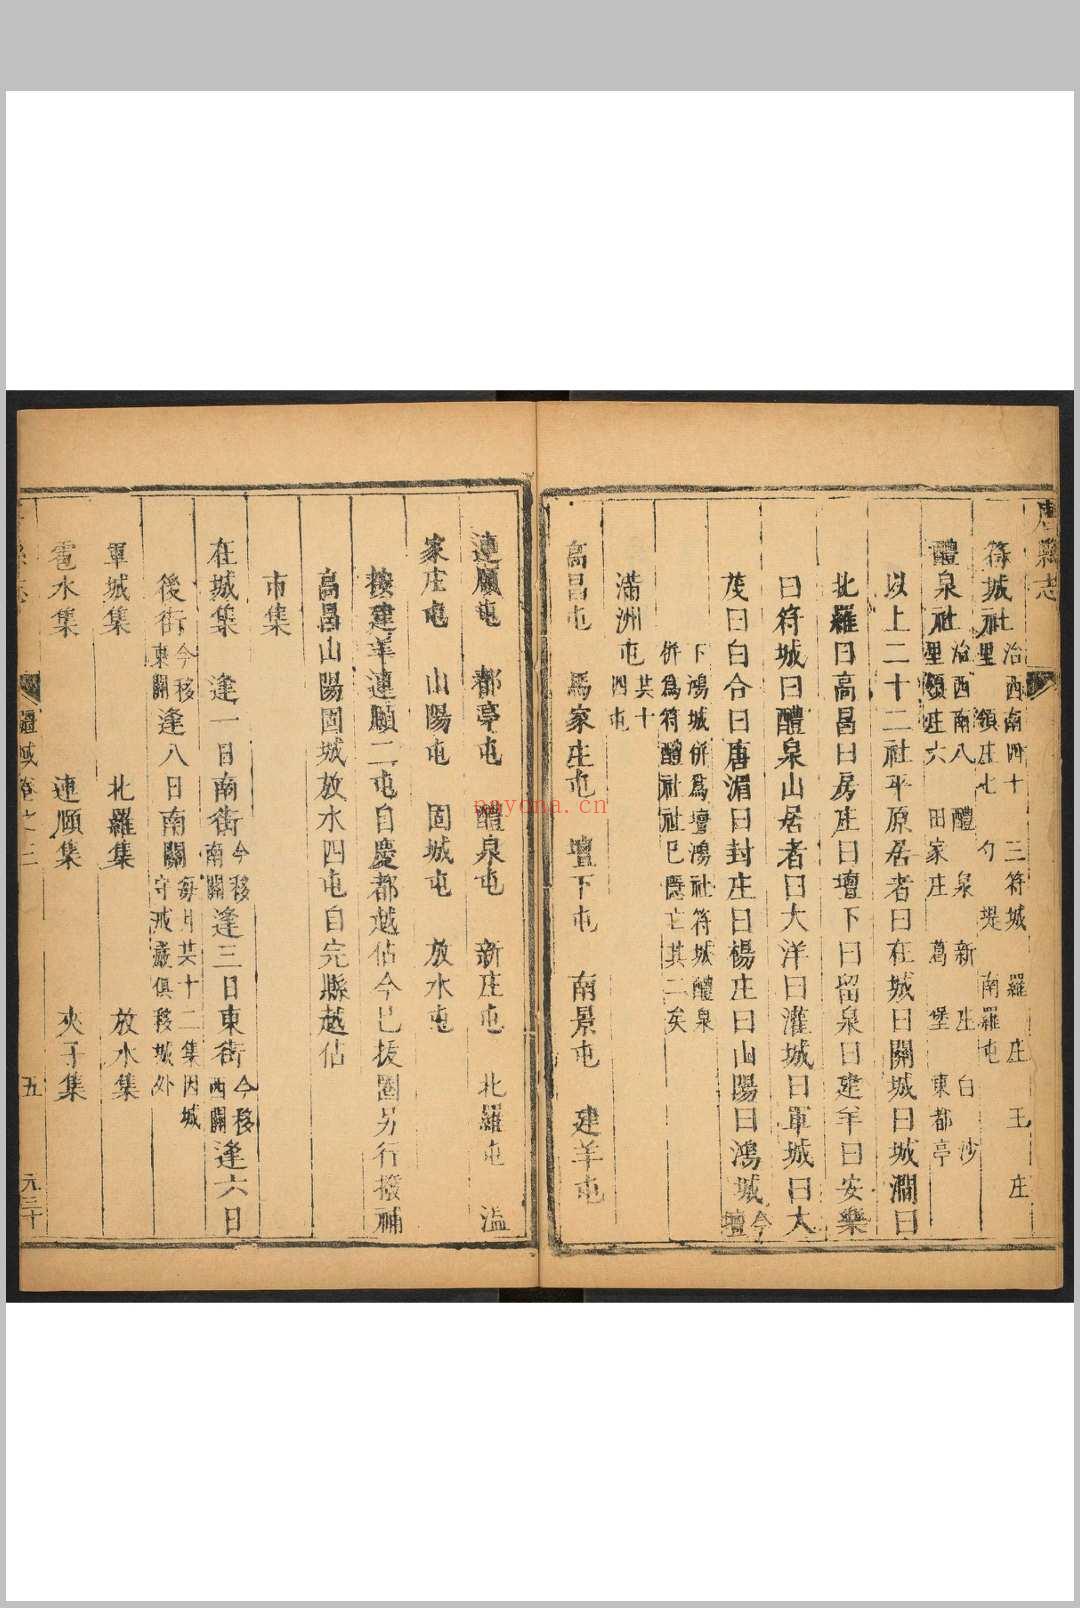 唐縣志
符城社 治西南四十里 領庄七 三符城 羅庄 王庄 勺堤 南羅屯
醴泉社 治西南八里 領庄六 醴泉 新庄 白沙 田家庄 葛堡 東都亭
以上二十二社平原居者曰在城曰關城曰城澗曰
北羅曰高昌曰房庄曰壇下曰留泉曰建羊曰安樂
曰符城曰醴泉山居者曰大洋曰灌城曰軍城曰大
茂曰白合曰唐湄曰封庄曰楊庄曰山陽曰鴻城 今壇
下鴻城併爲壇鴻社符城醴泉
併爲符醴社社已隱亡其二矣
滿洲屯 共十四屯
高昌屯 馬家庄屯 壇下屯 南景屯 建羊屯
連願屯 都亭屯 醴泉屯 新庄屯 北羅屯 溢
家庄屯 山陽屯 固城屯 放水屯
按建羊連願二屯自慶都越佔今已拔圈另行撥補
高昌山陽固城放水四屯自完縣越佔
市集
在城集 逢一日南街 今移南關 逢三日東街 今移西關 逢六日
後街 今移東關 逢八日南關 每月共十二集因城守戒嚴俱移城外
軍城集 北羅集 放水集
雹水集 連願集 夾子集
疆域卷之二 五
nayona.cn